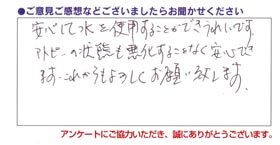 ●ご意見ご感想などございましたらお聞かせください
安心して水を使用することができうれしいです。
アトピーの状態も悪化することなく安心でき
ます。これからもよろしくお願い致します。
アンケートにご協力いただき、誠にありがとうございます。